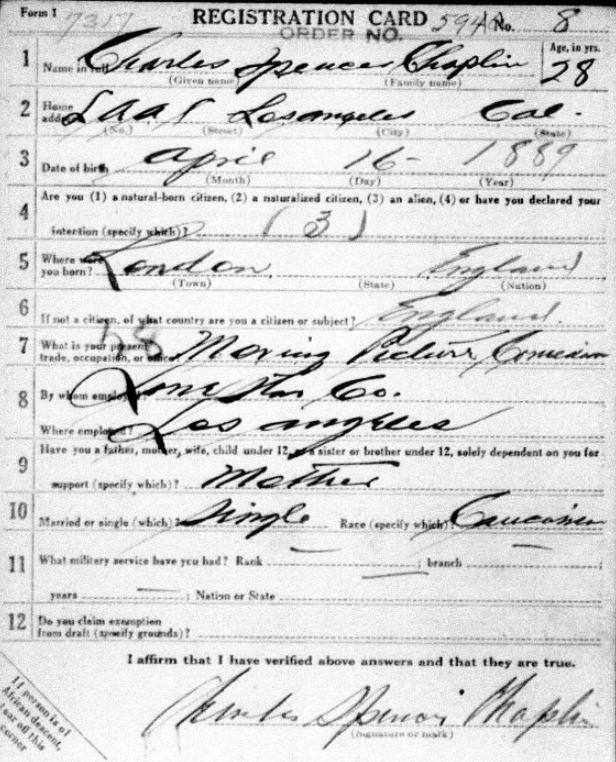 Form 1 7317 REGISTRATION CARD 594 No. 8
ORDER NO.
1 Name in full Charles Spencer Chaplin Age, in yrs. 28
(Given name) (Family name)
2 Home address LAAC Los angeles Cal.
(No.) (Street) (City) (State)
3 Date of birth April 16 - 1889
(Month) (Day) (Year)
4 Are you (1) a natural-born citizen, (2) a naturalized citizen, (3) an alien, (4) or have you declared your
intention (specify which)? (3)
5 Where were
you born? London England
(Town) (State) (Nation)
6 If not a citizen, of what country are you a citizen or subject? England.
7 What is your present
trade, occupation, or office? Moving Picture Comedian
8 By whom employed? Lone Star Co.
Where employed? Los angeles
9 Have you a father, mother, wife, child under 12, or a sister or brother under 12, solely dependent on you for
support (specify which)? Mother
10 Married or single (which)? Single Race (specify which)? Caucasian
11 What military service have you had? Rank — ; branch — ;
years — ; Nation or State —
12 Do you claim exemption
from draft (specify grounds)?
I affirm that I have verified above answers and that they are true.
Charles Spencer Chaplin
(Signature or mark)
If person is of
African descent,
tear off this
corner